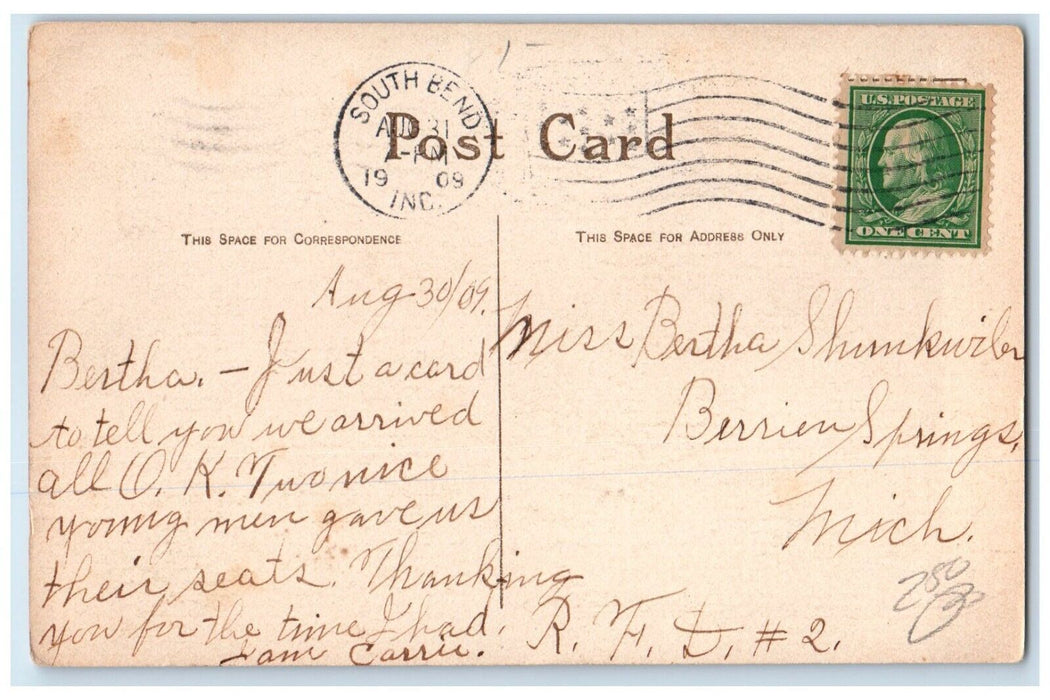 SOUTH BEND
AUG 31
-PM
19 09
IND.
Post Card
U.S. POSTAGE
ONE CENT
THIS SPACE FOR CORRESPONDENCE
THIS SPACE FOR ADDRESS ONLY
Aug 30/09.
Bertha. - Just a card
to tell you we arrived
all O. K. Two nice
young men gave us
their seats. Thanking
you for the time I had.
I am Carrie.
Miss Bertha Shunkwiler
Berrien Springs,
Mich.
R. F. D. #2.